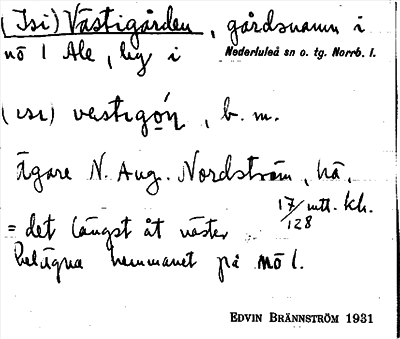 (Isi) Västigården, gårdsnamn i
nö 1 Ale, lig i Nederluleå sn o. tg. Norrb. l.
(ısı) vestıgǫ́n, b. m.
Ägare N. Aug. Nordström, hä.
17/128 mtl. kh.
= det längst åt väster
belägna hemmanet på nö 1.
EDVIN BRÄNNSTRÖM 1931